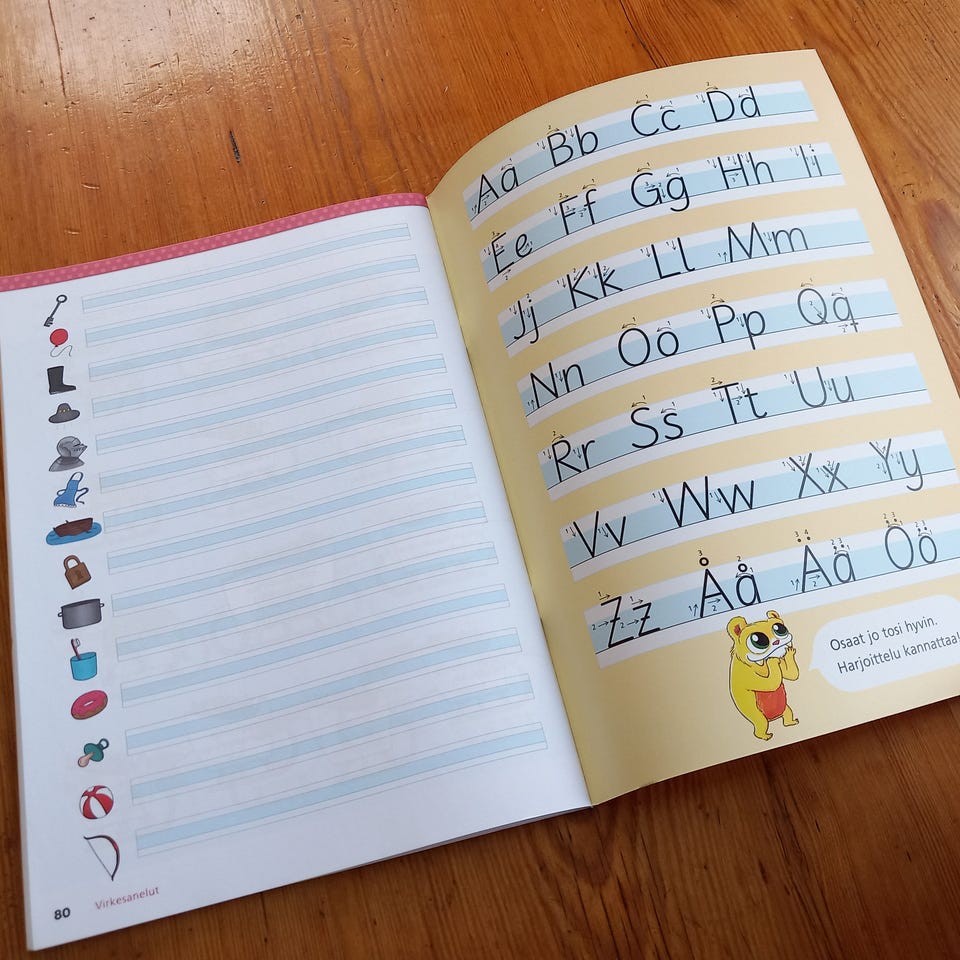 80 Virkesanelut
Aa Bb Cc Dd
Ee Ff Gg Hh Ii
Jj Kk Ll Mm
Nn Oo Pp Qq
Rr Ss Tt Uu
Vv Ww Xx Yy
Zz Åå Ää Öö
Osaat jo tosi hyvin.
Harjoittelu kannattaa!